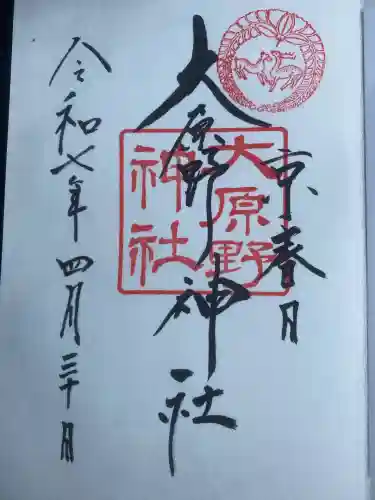 京春日
大原野神社
大原野
神社
令和七年四月三十日